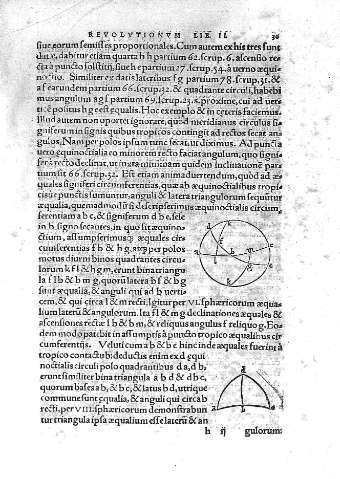 REVOLVTIONVM LIB II 30
siue eorum semisses proportionales. Cum autem ex his tres sunt
datæ, dabitur etiam quarta b h partium 62. scrup. 6. ascensio re
cta à puncto solstitij, siue h e partium 27. scrup. 54. à uerno æqui-
noctio. Similiter ex datis lateribus f g partium 78. scrup. 31. &
a f earundem partium 66. scrup. 32. & quadrante circuli, habebi
mus angulum a g f partium 69. scrup. 23. s. proxime, cui ad uerti
cem positus h g e est equalis. Hoc exemplo & in cæteris faciemus.
Illud autem non oportet ignorare, quod meridianus circulus si-
gniferum in signis quibus tropicos contingit ad rectos secat an-
gulos, Nam per polos ipsum tunc secat, ut diximus. Ad puncta
uero æquinoctialia eo minorem recto facias angulum, quo signi-
fer à recto declinat, ut iuxta minimam quidem inclinationē par-
tium sit 66. scrup. 32. Est etiam animaduertendum, quòd ad æ-
quales signiferi circumferentias, quæ ab æquinoctialibus tropi-
cisue punctis sumuntur, anguli & latera triangulorum sequūtur
æqualia, quemadmodū si descripserimus æquinoctialis circum-
ferentiam a b c, & signiferum d b e, sese
in b signo secantes, in quo sit æquino-
ctium, assumpserimusq; æquales circu
conferentias f b & b g, atq; per polos
motus diurni binos quadrantes circu-
lorum k f l & h g m, erunt bina triangu
la f l b & b m g, quorū latera b f & b g
sunt æqualia, & anguli qui ad b uerti-
cem, & qui circa l & m recti, igitur per VI. sphæricorum æqua-
lium laterū & angulorum. Ita f l & m g declinationes æquales &
ascensiones rectæ l b & b m, & reliquus angulus f reliquo g. Eo-
dem modo patebit in assumptis à puncto tropico æqualibus cir
cumferentijs. Vduti cum a b & b c hinc inde æquales fuerint à
tropico contactu b: deductis enim ex d equi
noctialis circuli polo quadrantibus d a, d b,
erunt similiter bina triangula a b d & d b c,
quorum bases a b & b c, & latus b d, utrique
commune sunt equalia, & anguli qui circa b
recti. per VIII. sphæricorum demonstrabun
tur triangula ipsa æqualium esse laterū & an
h ij gulorum: